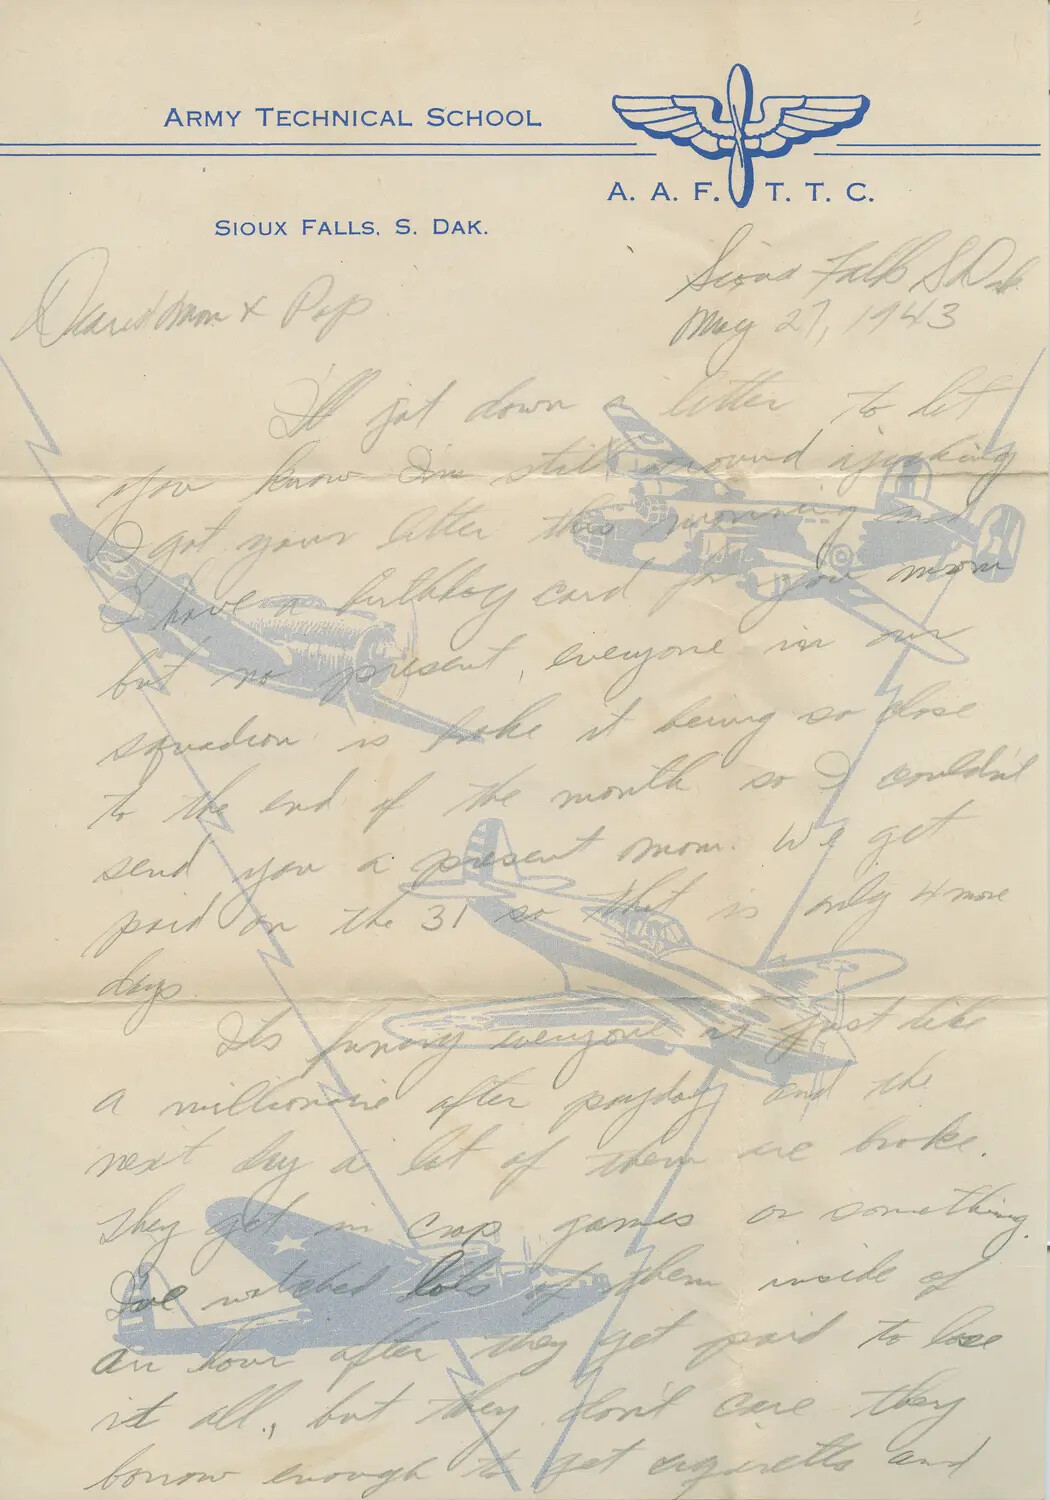 ARMY TECHNICAL SCHOOL
A. A. F. T. T. C.
SIOUX FALLS, S. DAK.
Sioux Falls S Dak
May 27, 1943
Dearest Mom & Pop
I'll jot down a letter to let
you know I'm still around a jerking
I got your letter this morning and
I have a birthday card for you mom
but no present, everyone in our
squadron is broke it being so close
to the end of the month so I couldn't
send you a present mom. We get
paid on the 31 so that is only 4 more
days
Its funny everyone is just like
a millionaire after payday and the
next day a lot of them are broke.
They get in crap games or something.
I've watched lots of them inside of
an hour after they get paid to lose
it all, but they don't care they
borrow enough to get cigaretts and